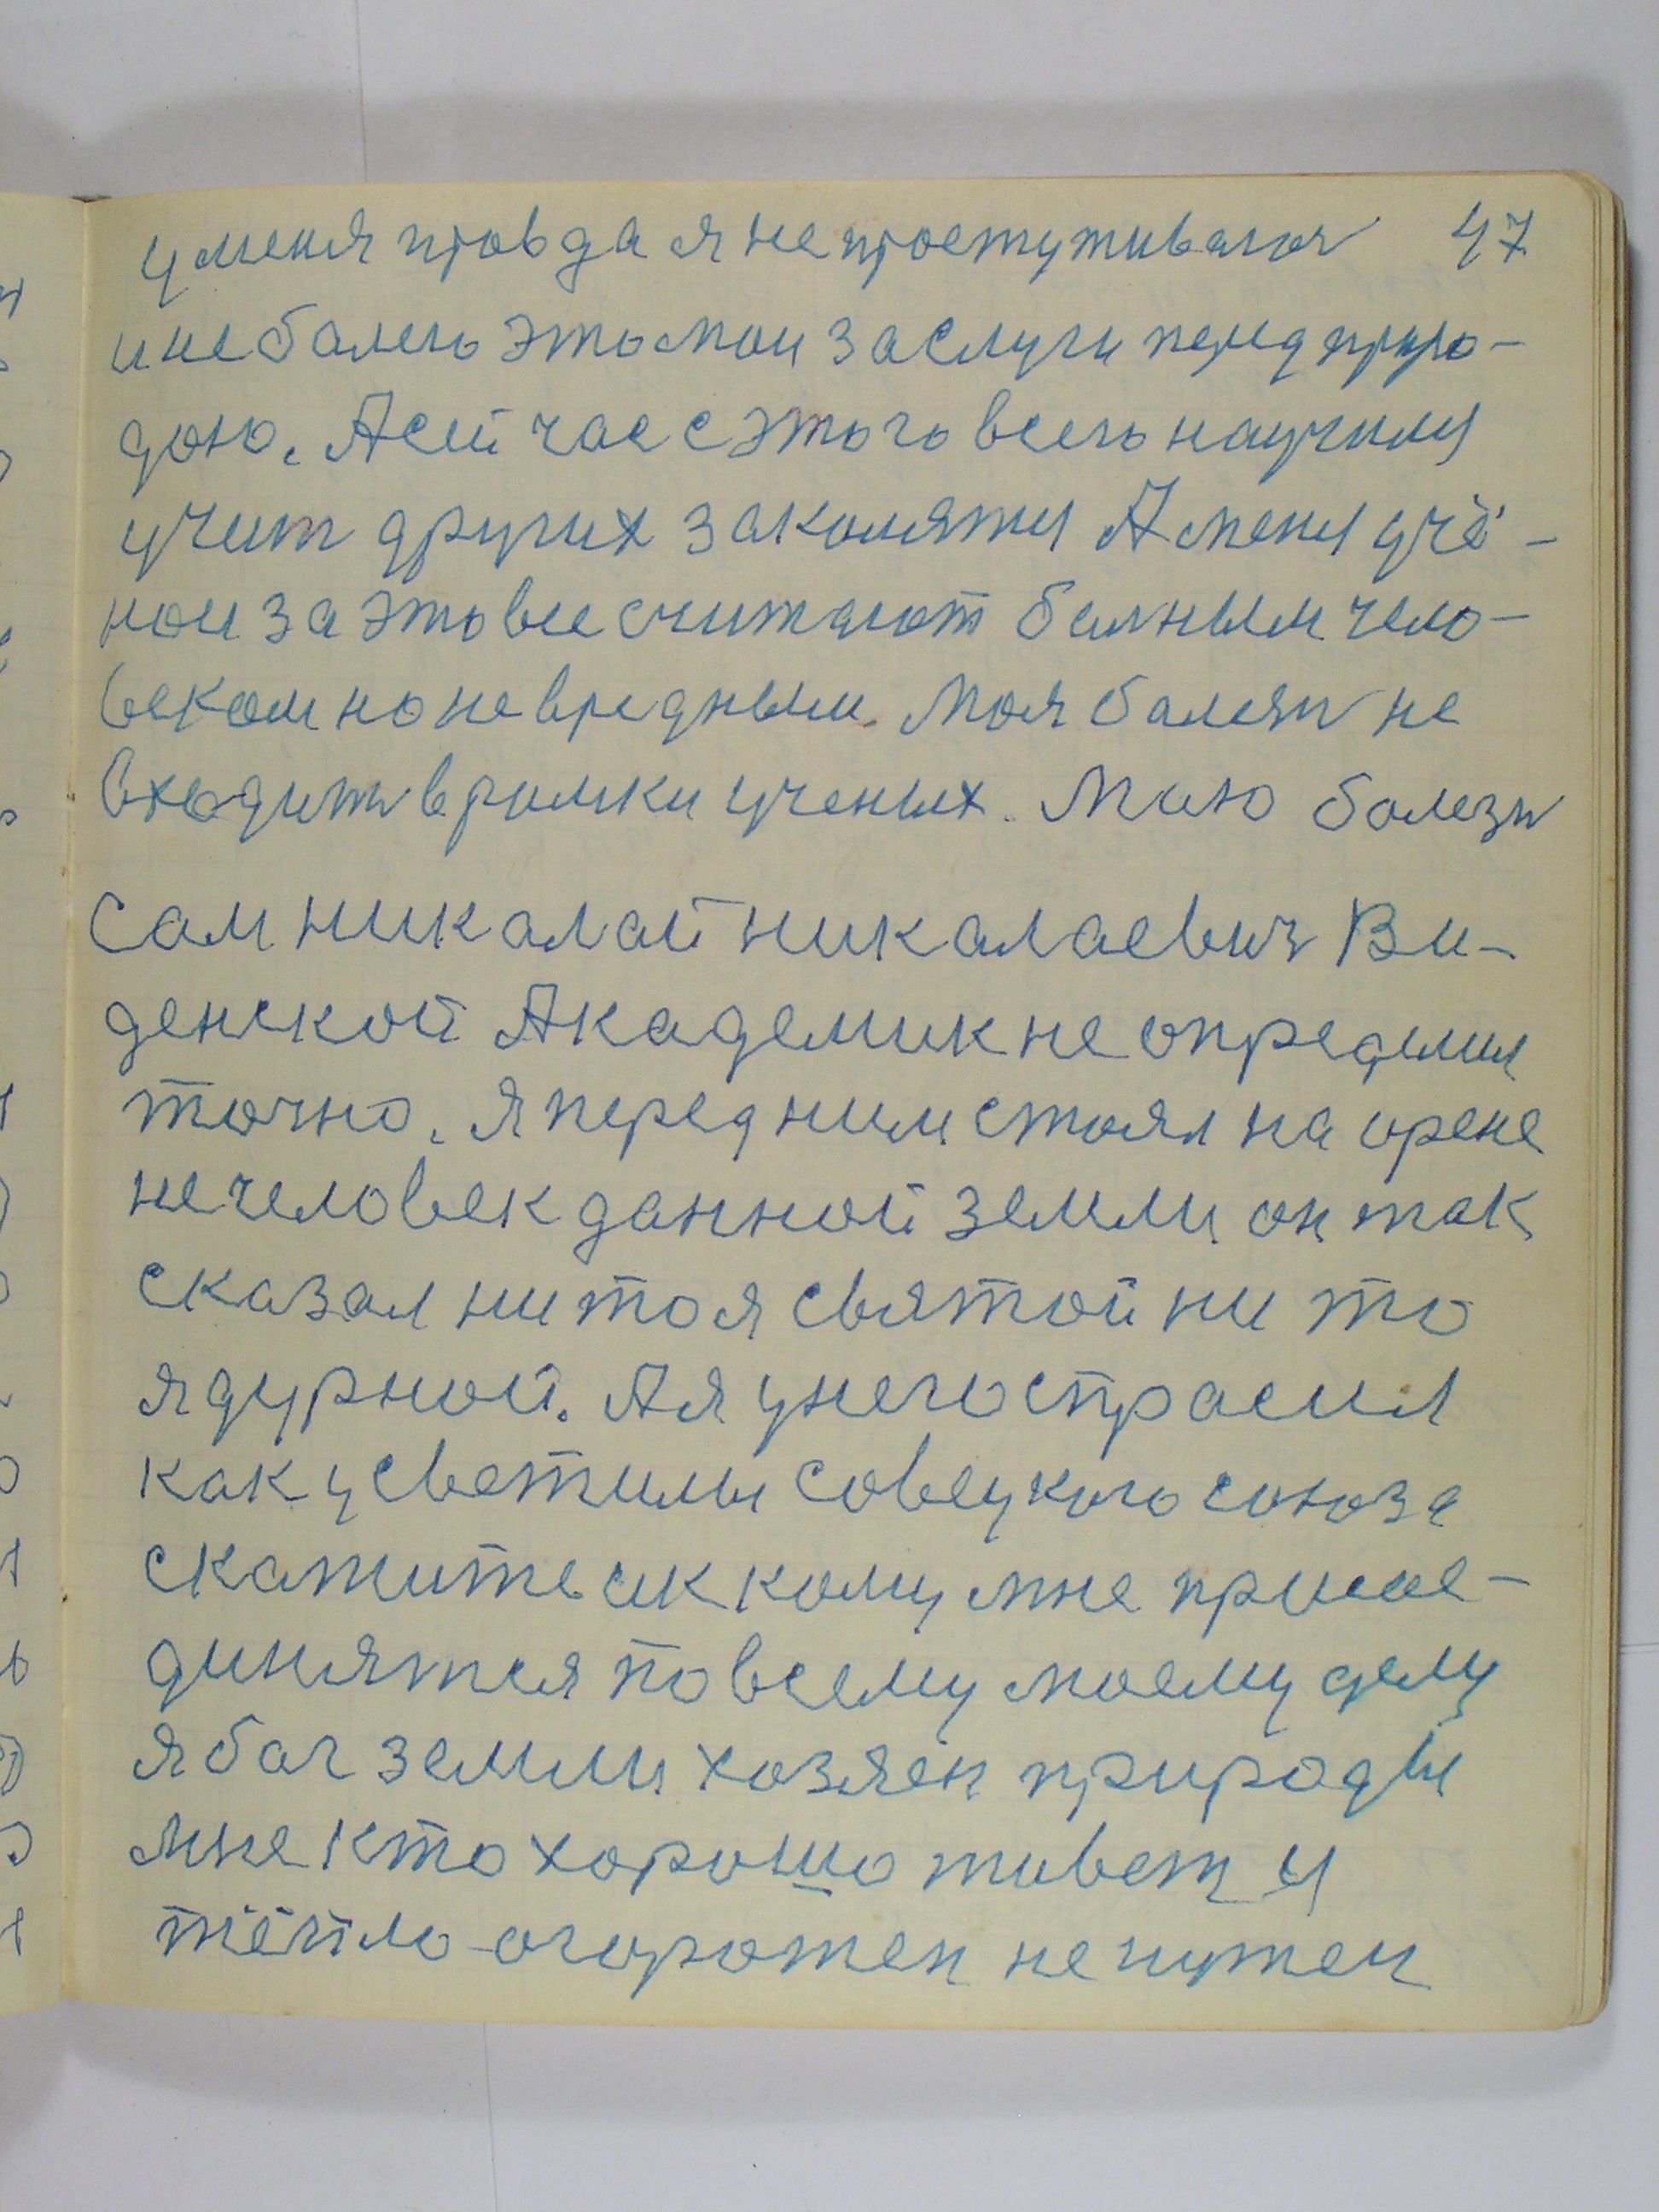 у меня провда я не простуживаюся 47
и не балею это мои заслуги перед приро-
дою. А сейчас с этого всего научился
учит других закаляться А меня учё-
нои за это все считают балным чело-
веком но не вредным. Моя балезн не
входить в рамки ученых. Маю болезн
Сам никалай никалаевич Ви-
денской Академик не определил
точно. Я перед ним стоял на орене
не человек данной земли он так
сказал ни то я святой ни то
я дурной. А я у него спрасил
как у светилы совецкого союза
скажите ик кому мне присое-
динятся по всему моему делу
я бог земли хозяён природы
мне кто хорошо живет и
тёпло огорожен не нужен